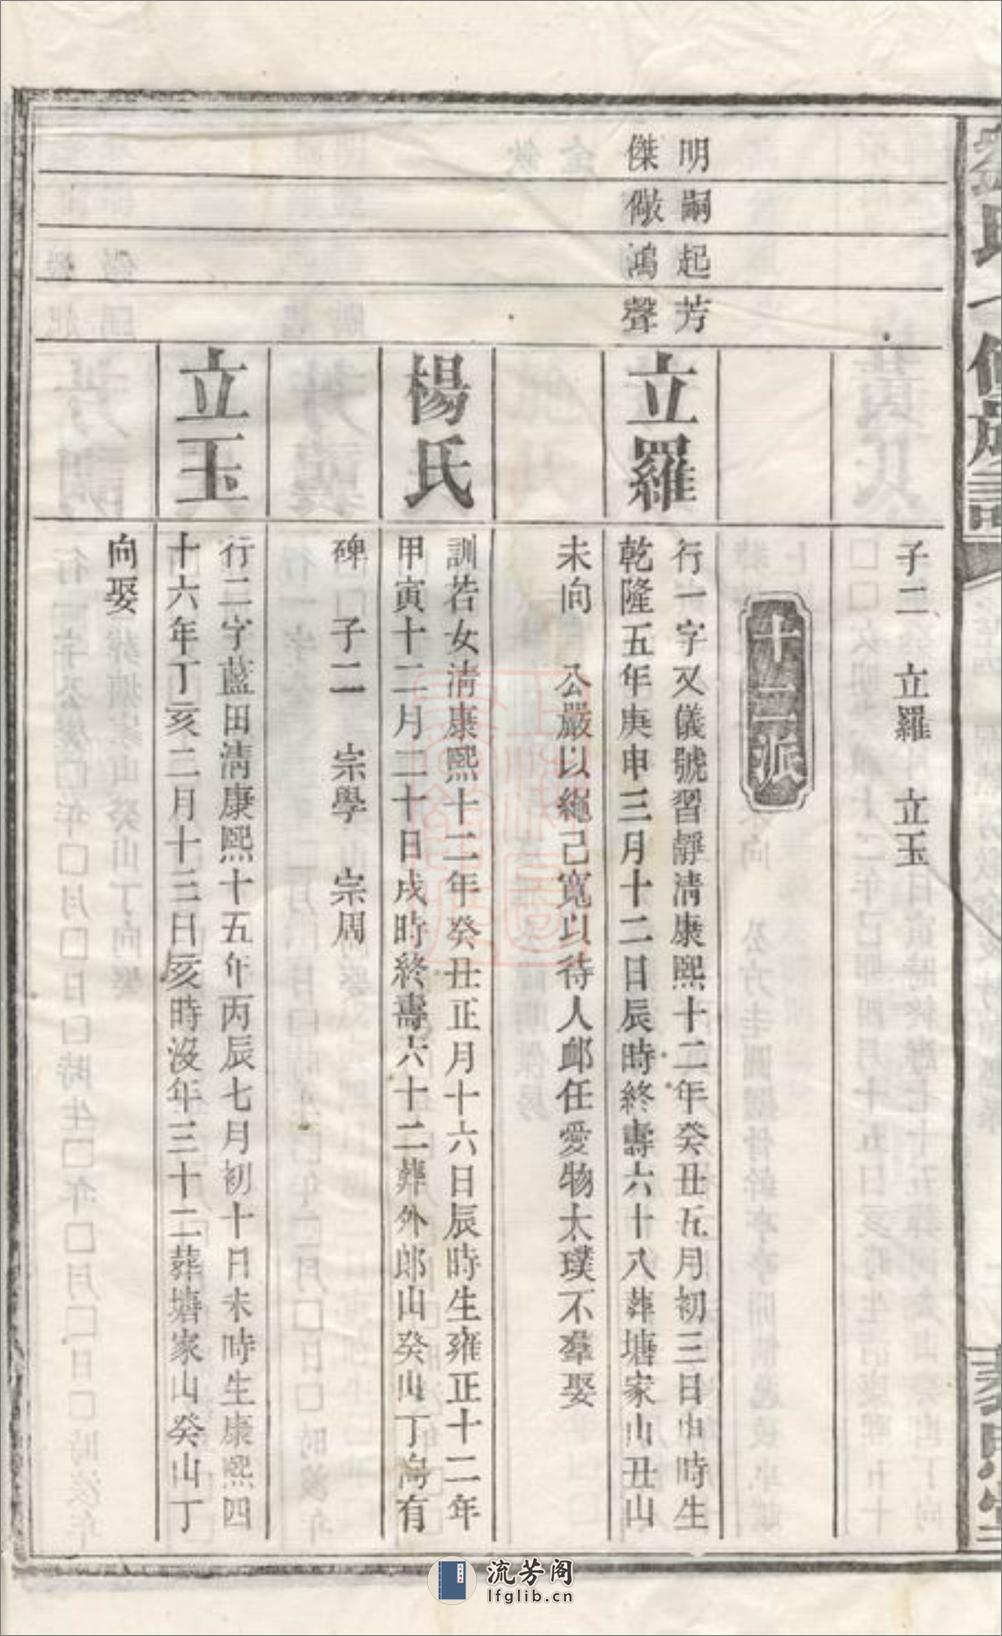 子二　立羅　立玉
十二派
明嗣起芳
傑儆鴻聲
立羅
行一字又儀號習靜清康熙十二年癸丑五月初三日申時生
乾隆五年庚申三月十二日辰時終壽六十八葬塘家山丑山
未向　公嚴以繩己寬以待人邮任愛物太璞不羣娶
楊氏
訓若女清康熙十二年癸丑正月十六日辰時生雍正十二年
甲寅十二月二十日戌時終壽六十二葬外郎山癸山丁向有
碑　子二　宗學　宗周
立玉
行二字藍田清康熙十五年丙辰七月初十日未時生康熙四
十六年丁亥二月十三日亥時沒年三十二葬塘家山癸山丁
向娶
流芳阁
lfglib.cn